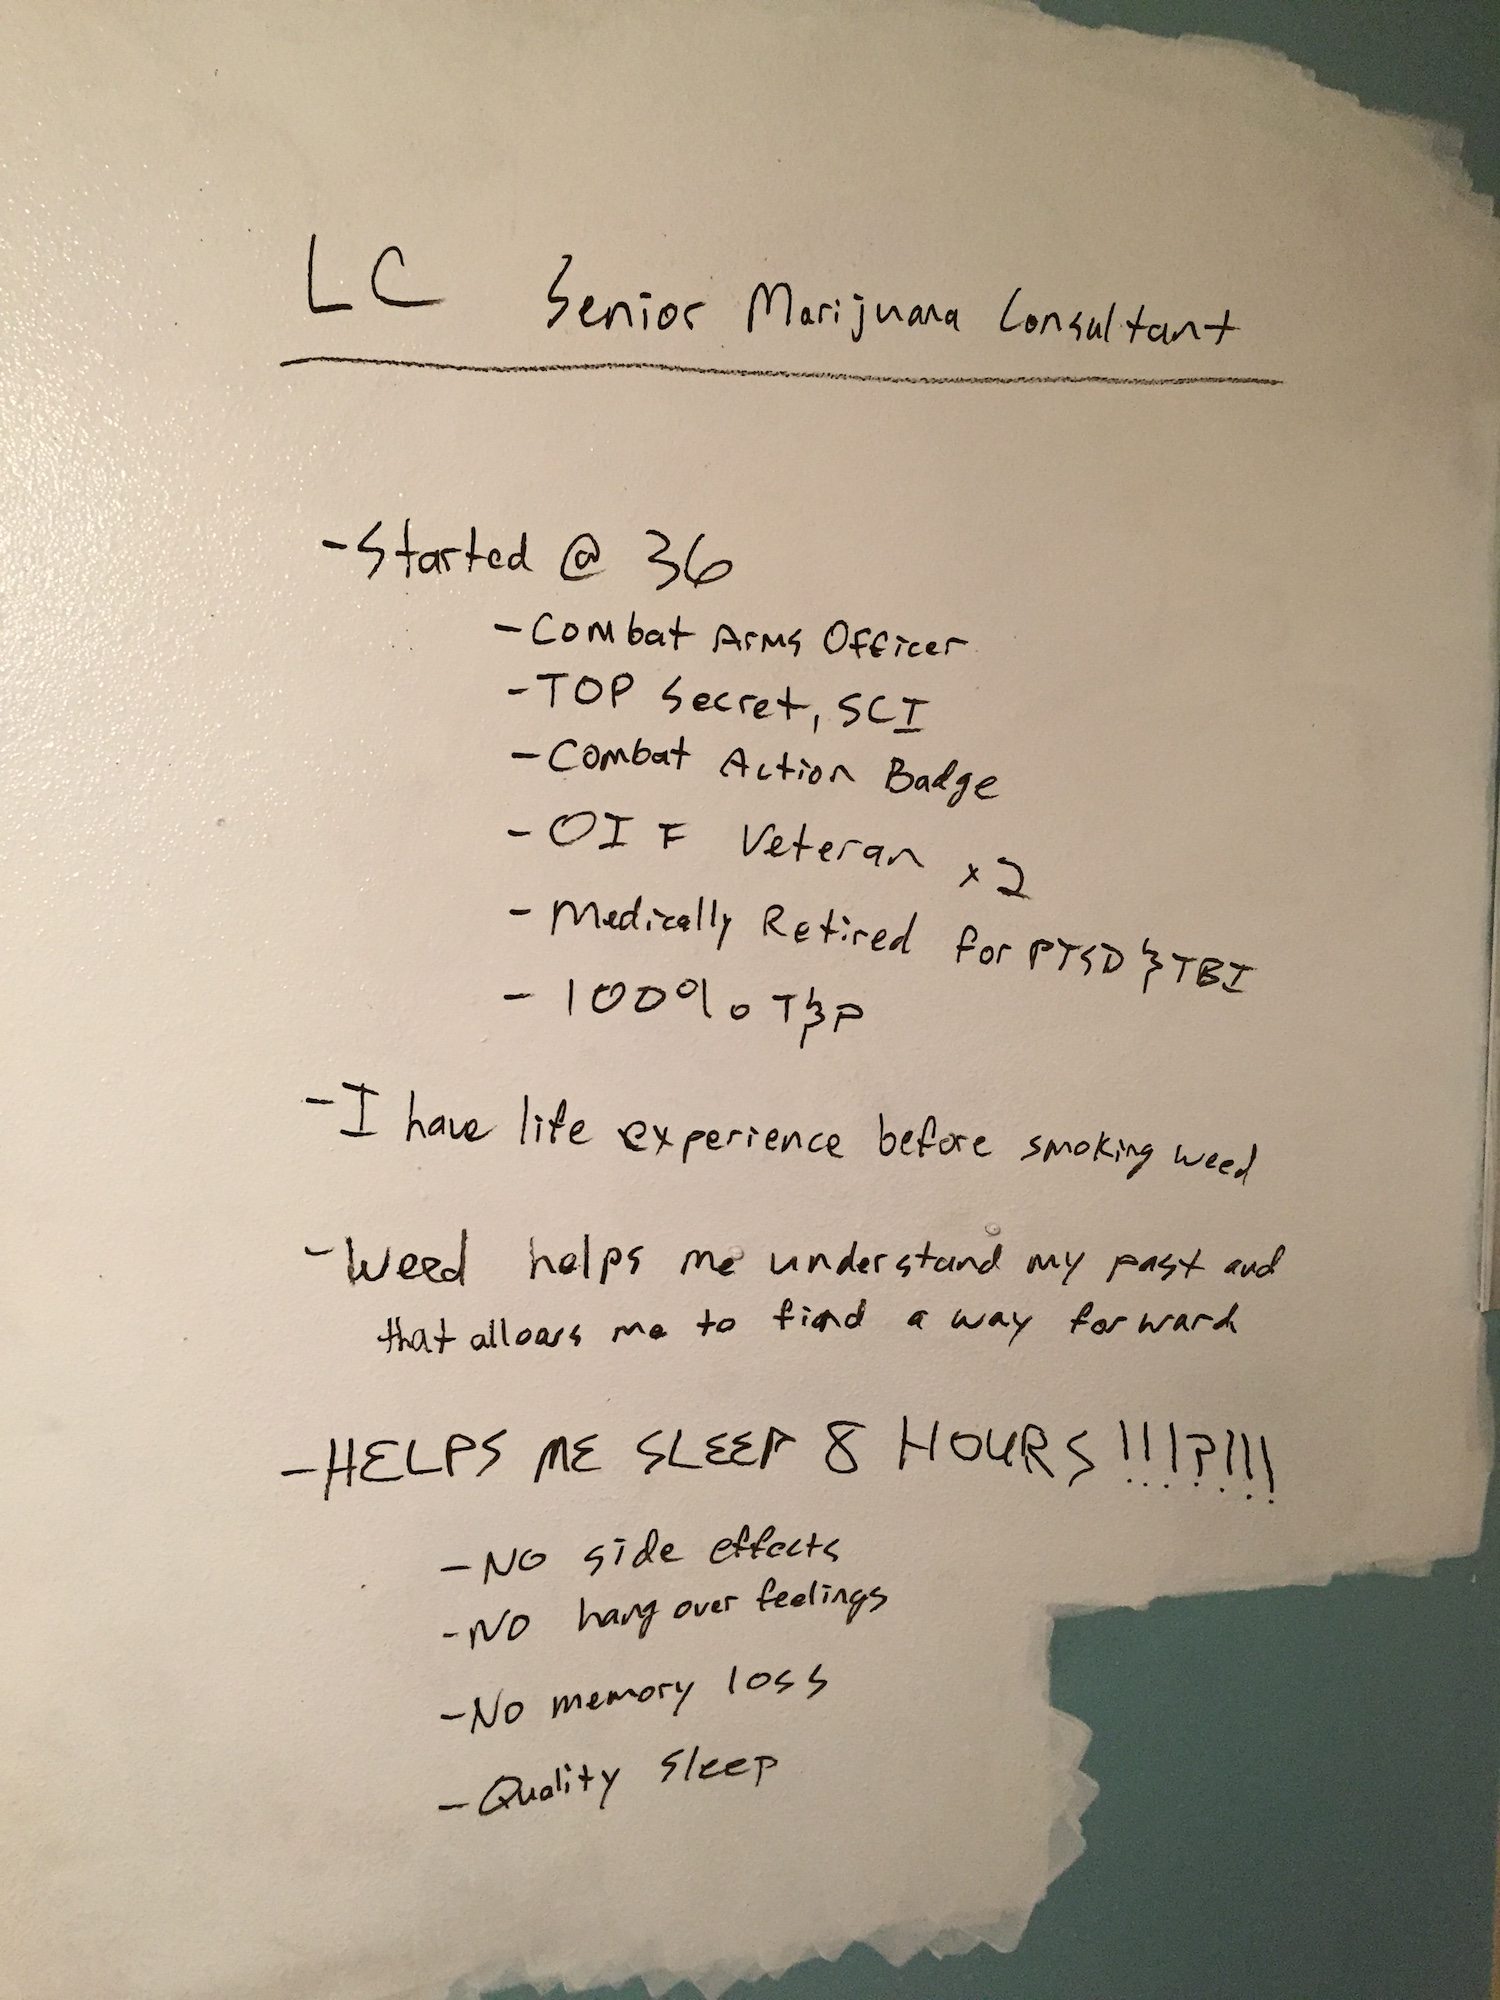 LC Senior Marijuana Consultant
- Started @ 36
- Combat Arms Officer
- TOP Secret, SCI
- Combat Action Badge
- OIF Veteran x2
- Medically Retired for PTSD & TBI
- 100% T&P
- I have life experience before smoking weed
- Weed helps me understand my past and
that allows me to find a way forward
- HELPS ME SLEEP 8 HOURS !!!?!!!
- NO side effects
- NO hang over feelings
- No memory loss
- Quality Sleep